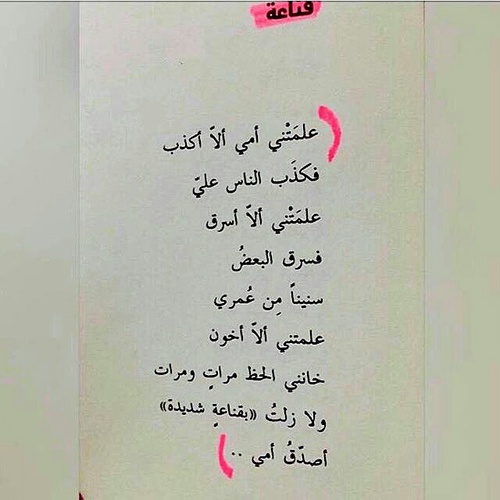 قناعة
علمَتْني أمي ألاّ أكذب
فكذَب الناس عليّ
علمَتْني ألاّ أسرق
فسرق البعضُ
سنيناً مِن عُمري
علمتني ألاّ أخون
خانني الحظ مراتٍ ومرات
ولا زلتُ «بقناعةٍ شديدة»
أصدّقُ أمي ..